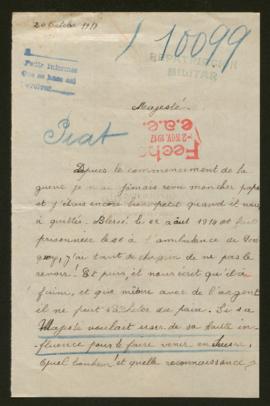 20 Octobre 1917
10099
Pedir informes
MILITAR
Majesté
Piat
Fecho
2 NOV. 1917
Depuis le commencement de la
guerre je n'ai jamais revu mon cher papa
et j'étais encore bien petit quand il nous
a quittés. Blessé le 22 août 1914 et fait
prisonnier le 26 à l'ambulance de
j'ai tant de chagrin de ne pas le
revoir! Et puis il nous écrit qu'il a
faim, et que même avec de l'argent
il ne peut acheter du pain. Si sa
Majesté voulait user de sa haute in-
fluence pour le faire venir en Suisse.
Quel bonheur! et quelle reconnaissance